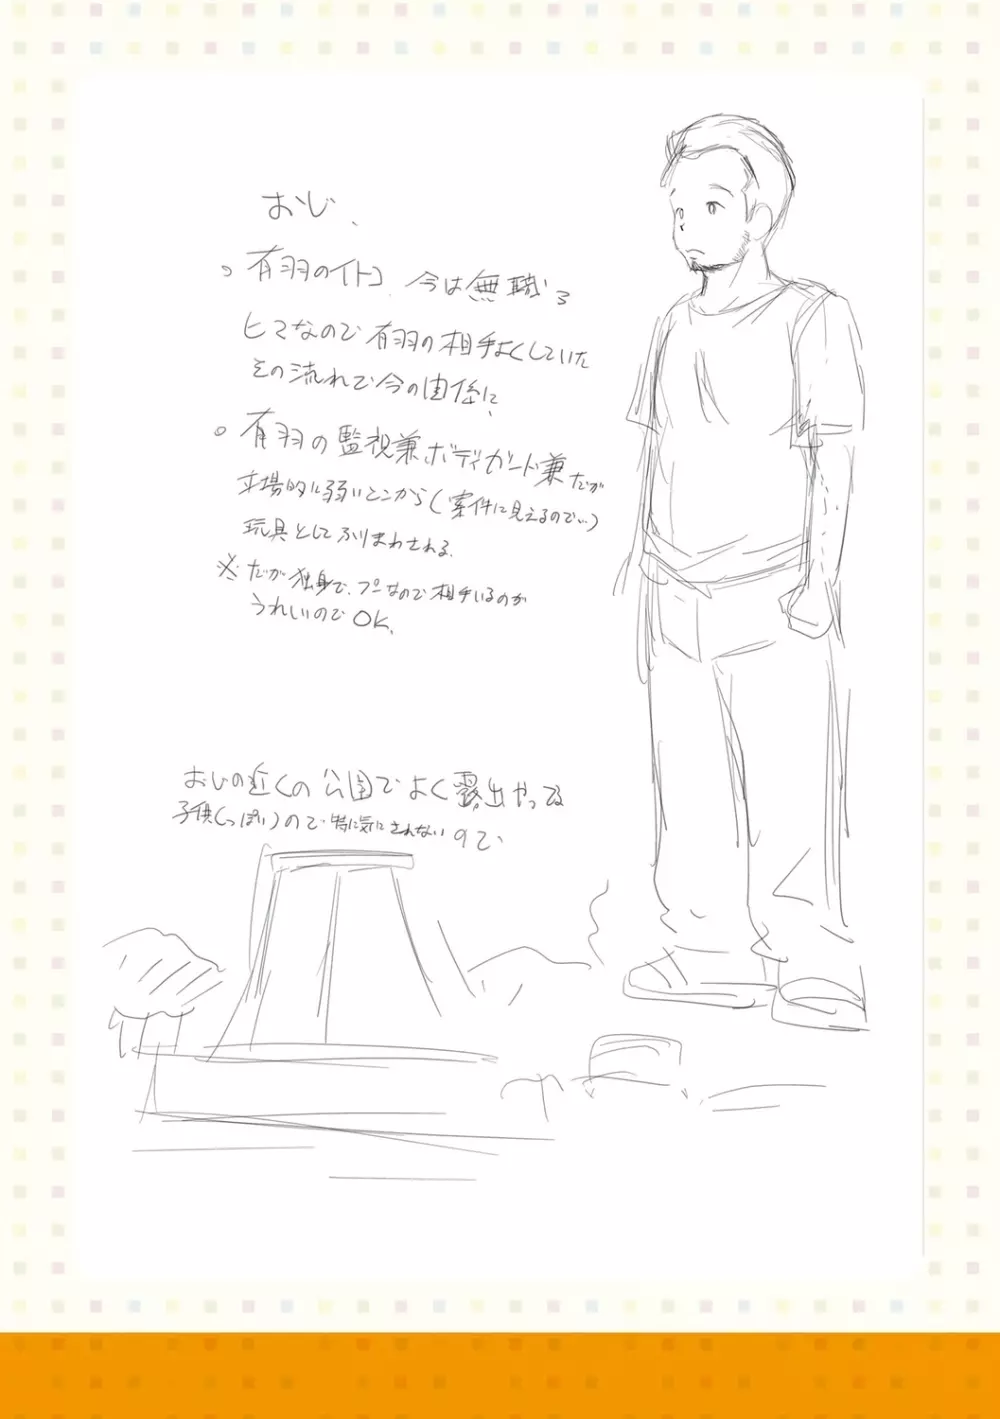 おじ、
。有羽のイトコ、今は無職で
ヒマなので有羽の相手よくしていた
その流れで今の関係に、
。有羽の監視兼ボディガード兼だが
立場的に弱いとこから(案件に見えるので…)
玩具としてふりまわされる。
※だが独身で、プーなので相手いるのが
うれしいのでOK。
おじの近くの公園でよく露出やってる
子供(っぽい)ので特に気にされないので、